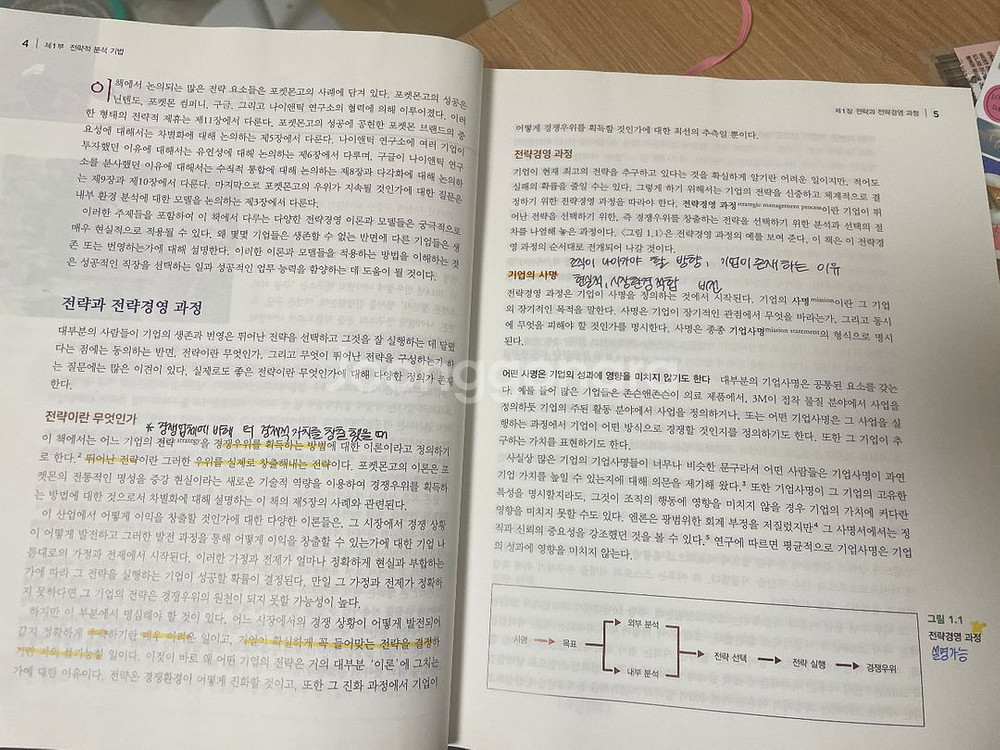 4 | 제1부 전략적 분석 기법
이 책에서 논의되는 많은 전략 요소들은 포켓몬고의 사례에 담겨 있다. 포켓몬고의 성공은
닌텐도, 포켓몬 컴퍼니, 구글, 그리고 나이앤틱 연구소의 협력에 의해 이루어졌다. 이러
한 형태의 전략적 제휴는 제11장에서 다룬다. 포켓몬고의 성공에 공헌한 포켓몬 브랜드의 중
요성에 대해서는 차별화에 대해 논의하는 제5장에서 다룬다. 나이앤틱 연구소에 여러 기업이
투자했던 이유에 대해서는 유연성에 대해 논의하는 제6장에서 다루며, 구글이 나이앤틱 연구
소를 분사했던 이유에 대해서는 수직적 통합에 대해 논의하는 제8장과 다각화에 대해 논의하
는 제9장과 제10장에서 다룬다. 마지막으로 포켓몬고의 우위가 지속될 것인가에 대한 질문은
내부 환경 분석에 대한 모델을 논의하는 제3장에서 다룬다.
이러한 주제들을 포함하여 이 책에서 다루는 다양한 전략경영 이론과 모델들은 궁극적으로
매우 현실적으로 적용될 수 있다. 왜 몇몇 기업들은 생존할 수 없는 반면에 다른 기업들은 생
존 또는 번영하는가에 대해 설명한다. 이러한 이론과 모델들을 적용하는 방법을 이해하는 것
은 성공적인 직장을 선택하는 일과 성공적인 업무 능력을 함양하는 데 도움이 될 것이다.
전략과 전략경영 과정
대부분의 사람들이 기업의 생존과 번영은 뛰어난 전략을 선택하고 그것을 잘 실행하는 데 달렸
다는 점에는 동의하는 반면, 전략이란 무엇인가, 그리고 무엇이 뛰어난 전략을 구성하는가 하
는 질문에는 많은 이견이 있다. 실제로도 좋은 전략이란 무엇인가에 대해 다양한 정의가 존재
한다.
전략이란 무엇인가
* 경쟁업체에 비해 더 경제적 가치를 창출 했을 때
이 책에서는 어느 기업의 전략strategy을 경쟁우위를 획득하는 방법에 대한 이론이라고 정의하기
로 한다.2 뛰어난 전략이란 그러한 우위를 실제로 창출해내는 전략이다. 포켓몬고의 이론은 포
켓몬의 전통적인 명성을 증강 현실이라는 새로운 기술적 역량을 이용하여 경쟁우위를 획득하
는 방법에 대한 것으로서 차별화에 대해 설명하는 이 책의 제5장의 사례와 관련된다.
이 산업에서 어떻게 이익을 창출할 것인가에 대한 다양한 이론들은, 그 시장에서 경쟁 상황
이 어떻게 발전하고 그러한 발전 과정을 통해 어떻게 이익을 창출할 수 있는가에 대한 기업 나
름대로의 가정과 전제에서 시작된다. 이러한 가정과 전제가 얼마나 정확하게 현실과 부합하는
가에 따라 그 전략을 실행하는 기업이 성공할 확률이 결정된다. 만일 그 가정과 전제가 정확하
지 못하다면 그 기업의 전략은 경쟁우위의 원천이 되지 못할 가능성이 높다.
하지만 이 부분에서 명심해야 할 것이 있다. 어느 시장에서의 경쟁 상황이 어떻게 발전되어
갈지 정확하게 하기란 매우 어려운 일이고, 기업이 확실하게 꼭 들어맞는 전략을 결정하
기란 거의 불가능할 일이다. 이것이 바로 왜 어떤 기업의 전략은 거의 대부분 '이론'에 그치는
가에 대한 이유이다. 전략은 경쟁환경이 어떻게 진화할 것이고, 또한 그 진화 과정에서 기업이
제1장 전략과 전략경영 과정 | 5
어떻게 경쟁우위를 획득할 것인가에 대한 최선의 추측일 뿐이다.
전략경영 과정
기업이 현재 최고의 전략을 추구하고 있다는 것을 확실하게 알기란 어려운 일이지만, 적어도
실패의 확률을 줄일 수는 있다. 그렇게 하기 위해서는 기업의 전략을 신중하고 체계적으로 결
정하기 위한 전략경영 과정을 따라야 한다. 전략경영 과정strategic management process이란 기업이 뛰
어난 전략을 선택하기 위한, 즉 경쟁우위를 창출하는 전략을 선택하기 위한 분석과 선택의 절
차를 나열해 놓은 과정이다. 〈그림 1.1〉은 전략경영 과정의 예를 보여 준다. 이 책은 이 전략경
영 과정의 순서대로 전개되어 나갈 것이다.
조직이 나아가야 할 방향, 기업이 존재하는 이유
기업의 사명 현실적, 시장환경적합 비전
전략경영 과정은 기업이 사명을 정의하는 것에서 시작된다. 기업의 사명mission이란 그 기업
의 장기적인 목적을 말한다. 사명은 기업이 장기적인 관점에서 무엇을 바라는가, 그리고 동시
에 무엇을 피해야 할 것인가를 명시한다. 사명은 종종 기업사명mission statement의 형식으로 명시
된다.
어떤 사명은 기업의 성과에 영향을 미치지 않기도 한다 대부분의 기업사명은 공통된 요소를 갖는
다. 예를 들어 많은 기업들은 존슨앤존슨이 의료 제품에서, 3M이 접착 물질 분야에서 사업을
정의하듯 기업의 주된 활동 분야에서 사업을 정의하거나, 또는 어떤 기업사명은 그 사업을 실
행하는 과정에서 기업이 어떤 방식으로 경쟁할 것인지를 정의하기도 한다. 또한 그 기업이 추
구하는 가치를 표현하기도 한다.
사실상 많은 기업의 기업사명들이 너무나 비슷한 문구라서 어떤 사람들은 기업사명이 과연
기업 가치를 높일 수 있는지에 대해 의문을 제기해 왔다.3 또한 기업사명이 그 기업의 고유한
특성을 명시할지라도, 그것이 조직의 행동에 영향을 미치지 않을 경우 기업의 가치에 커다란
영향을 미치지 못할 수도 있다. 엔론은 광범위한 회계 부정을 저질렀지만4 그 사명서에서는 정
직과 신뢰의 중요성을 강조했던 것을 볼 수 있다.5 연구에 따르면 평균적으로 기업사명은 기업
의 성과에 영향을 미치지 않는다.
사명 목표 외부 분석 내부 분석 전략 선택 전략 실행 경쟁우위
그림 1.1
전략경영 과정
설명가능